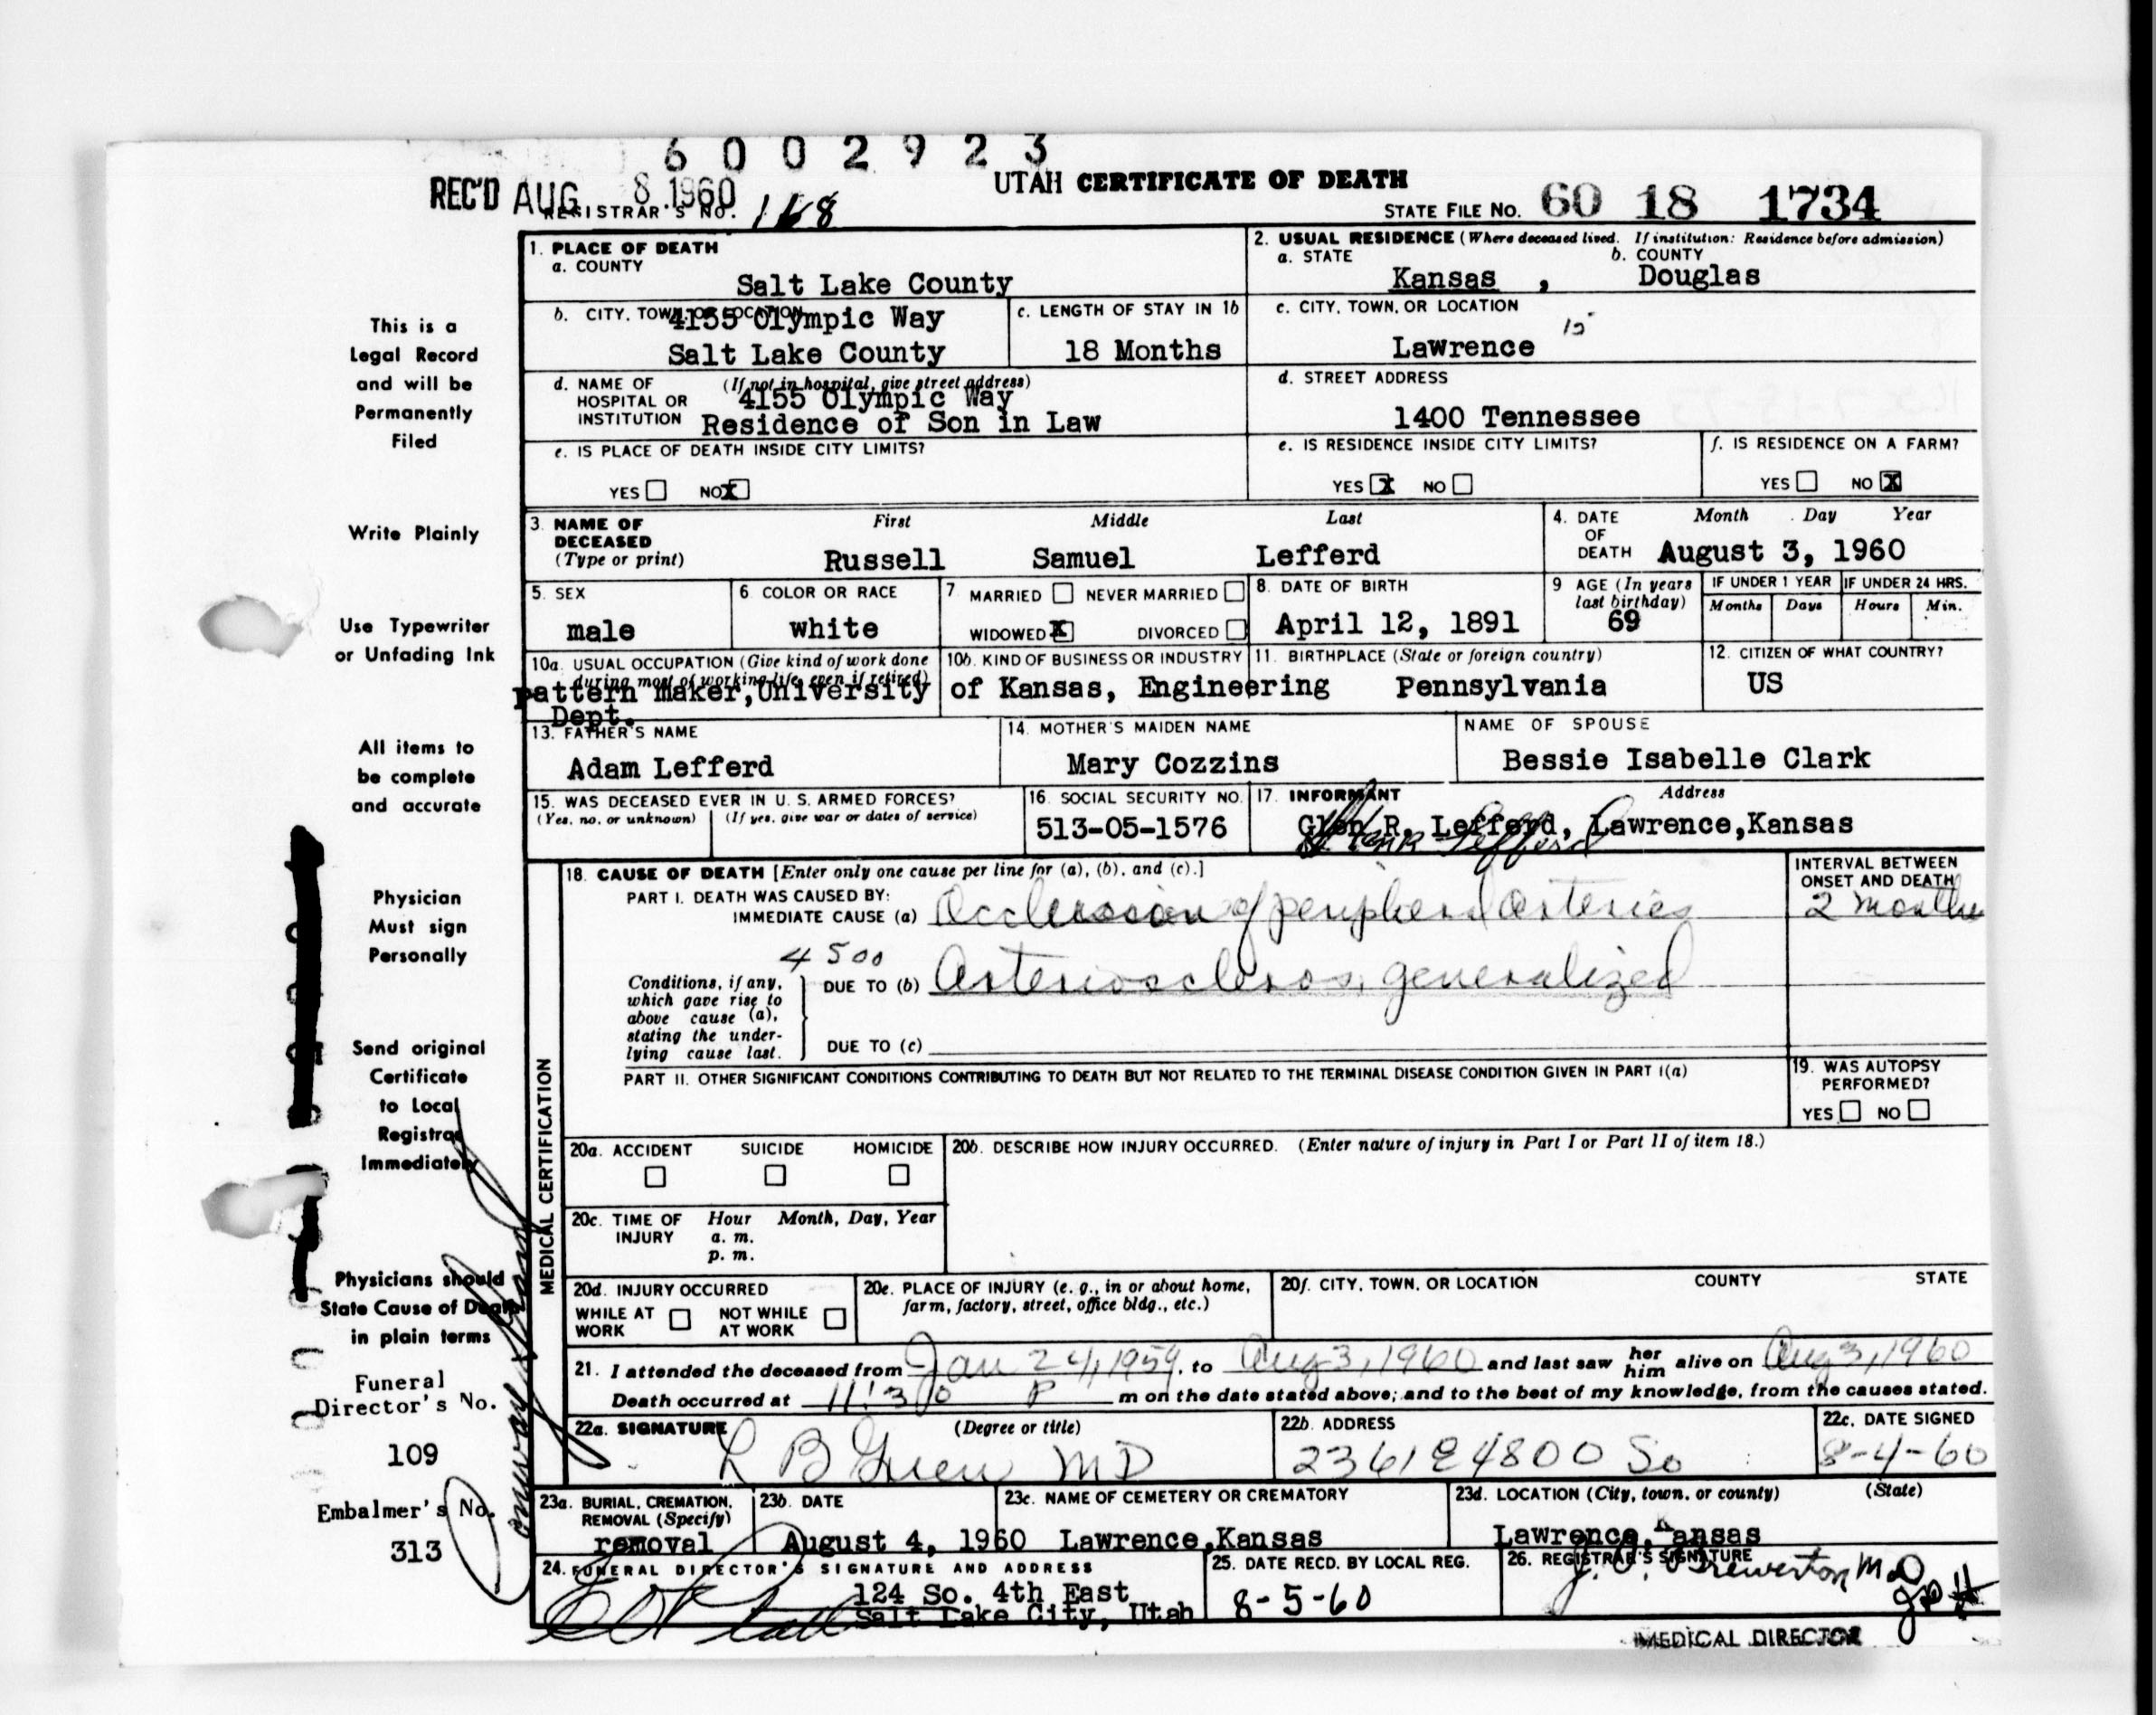 6002923
REC'D AUG 8 1960
REGISTRAR'S NO. 168
UTAH CERTIFICATE OF DEATH
STATE FILE NO. 60 18 1734
This is a
Legal Record
and will be
Permanently
Filed
Write Plainly
Use Typewriter
or Unfading Ink
All items to
be complete
and accurate
Physician
Must sign
Personally
Send original
Certificate
to Local
Registrar
Immediately
Physicians should
State Cause of Death
in plain terms
Funeral
Director's No.
109
Embalmer's No.
313
1. PLACE OF DEATH
a. COUNTY
Salt Lake County
2. USUAL RESIDENCE (Where deceased lived. If institution: Residence before admission)
a. STATE b. COUNTY
Kansas , Douglas
b. CITY, TOWN, OR LOCATION
4155 Olympic Way
Salt Lake County
c. LENGTH OF STAY IN 1b
18 Months
c. CITY, TOWN, OR LOCATION
15
Lawrence
d. NAME OF (If not in hospital, give street address)
HOSPITAL OR
INSTITUTION
4155 Olympic Way
Residence of Son in Law
d. STREET ADDRESS
1400 Tennessee
e. IS PLACE OF DEATH INSIDE CITY LIMITS?
YES NO X
e. IS RESIDENCE INSIDE CITY LIMITS?
YES X NO
f. IS RESIDENCE ON A FARM?
YES NO X
3. NAME OF DECEASED (Type or print)
First Middle Last
Russell Samuel Lefferd
4. DATE OF DEATH
Month Day Year
August 3, 1960
5. SEX
male
6. COLOR OR RACE
white
7. MARRIED NEVER MARRIED
WIDOWED X DIVORCED
8. DATE OF BIRTH
April 12, 1891
9 AGE (In years last birthday)
69
IF UNDER 1 YEAR IF UNDER 24 HRS.
Months Days Hours Min.
10a. USUAL OCCUPATION (Give kind of work done during most of working life, even if retired)
10b. KIND OF BUSINESS OR INDUSTRY
pattern maker, University of Kansas, Engineering
Dept.
11. BIRTHPLACE (State or foreign country)
Pennsylvania
12. CITIZEN OF WHAT COUNTRY?
US
13. FATHER'S NAME
Adam Lefferd
14. MOTHER'S MAIDEN NAME
Mary Cozzins
NAME OF SPOUSE
Bessie Isabelle Clark
15. WAS DECEASED EVER IN U. S. ARMED FORCES?
(Yes, no, or unknown) (If yes, give war or dates of service)
16. SOCIAL SECURITY NO.
513-05-1576
17. INFORMANT Address
Glen R. Lefferd, Lawrence,Kansas
Glenn R Lefferd
MEDICAL CERTIFICATION
18. CAUSE OF DEATH [Enter only one cause per line for (a), (b), and (c).]
PART I. DEATH WAS CAUSED BY:
IMMEDIATE CAUSE (a) Occlusion of peripheral arteries
INTERVAL BETWEEN
ONSET AND DEATH
2 months
4500
Conditions, if any,
which gave rise to
above cause (a),
stating the under-
lying cause last.
DUE TO (b) Arteriosclerosis, generalized
DUE TO (c)
PART II. OTHER SIGNIFICANT CONDITIONS CONTRIBUTING TO DEATH BUT NOT RELATED TO THE TERMINAL DISEASE CONDITION GIVEN IN PART I(a)
19. WAS AUTOPSY
PERFORMED?
YES NO
20a. ACCIDENT SUICIDE HOMICIDE
20b. DESCRIBE HOW INJURY OCCURRED. (Enter nature of injury in Part I or Part II of item 18.)
20c. TIME OF INJURY Hour Month, Day, Year
a. m.
p. m.
20d. INJURY OCCURRED
WHILE AT WORK NOT WHILE AT WORK
20e. PLACE OF INJURY (e. g., in or about home,
farm, factory, street, office bldg., etc.)
20f. CITY, TOWN, OR LOCATION COUNTY STATE
21. I attended the deceased from Jan 24, 1959, to Aug 3, 1960 and last saw her him alive on Aug 3, 1960
Death occurred at 11:30 P m on the date stated above; and to the best of my knowledge, from the causes stated.
22a. SIGNATURE (Degree or title)
L B Green MD
22b. ADDRESS
2361 E 4800 So
22c. DATE SIGNED
8-4-60
23a. BURIAL, CREMATION,
REMOVAL (Specify)
removal
23b. DATE
August 4, 1960
23c. NAME OF CEMETERY OR CREMATORY
Lawrence,Kansas
23d. LOCATION (City, town, or county) (State)
Lawrence, Kansas
24. FUNERAL DIRECTOR'S SIGNATURE AND ADDRESS
124 So. 4th East
Salt Lake City, Utah
25. DATE RECD. BY LOCAL REG.
8-5-60
26. REGISTRAR'S SIGNATURE
Brewerton M.D
MEDICAL DIRECTOR